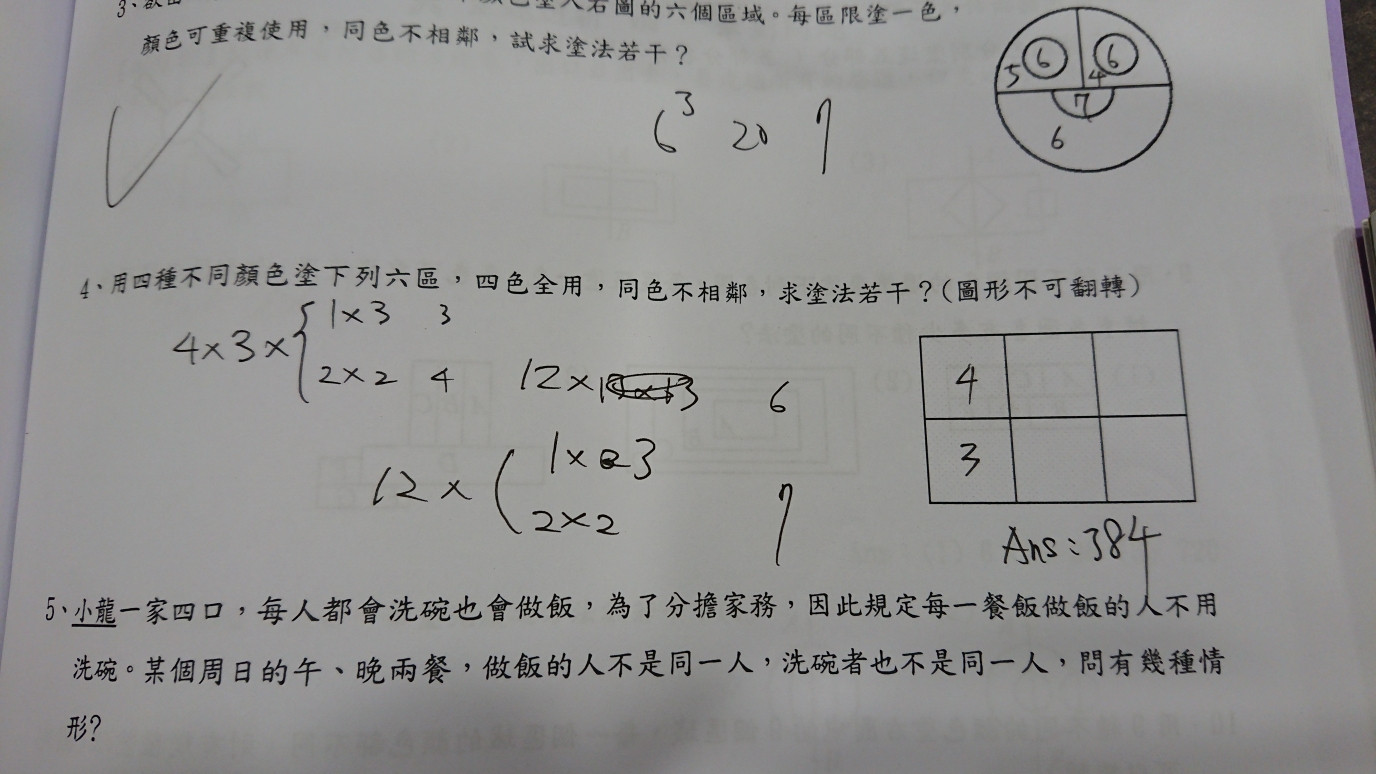 顏色塗入右圖的六個區域。每區限塗一色，
顏色可重複使用，同色不相鄰，試求塗法若干？
6 6
5 4
7
6
6³ 20 7
4、用四種不同顏色塗下列六區，四色全用，同色不相鄰，求塗法若干？(圖形不可翻轉)
4×3× { 1×3 3
2×2 4 12× 6
12× ( 1× 3
2×2 7
4
3
Ans:384
5、小龍一家四口，每人都會洗碗也會做飯，為了分擔家務，因此規定每一餐飯做飯的人不用
洗碗。某個周日的午、晚兩餐，做飯的人不是同一人，洗碗者也不是同一人，問有幾種情
形?